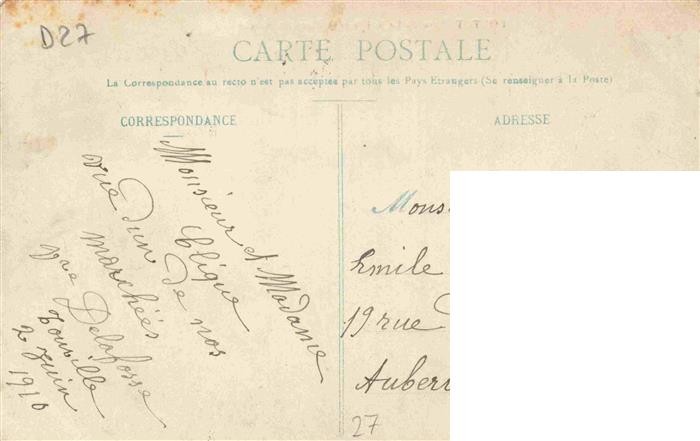 D27
CARTE POSTALE
La Correspondance au recto n'est pas acceptée par tous les Pays Étrangers (Se renseigner à la Poste)
CORRESPONDANCE
Monsieur et Madame
Clique
vue d'un de nos
marchées
Vve Delafosse
Tourville
2 Juin
1910
ADRESSE
Mons
Emile
19 rue
Auber
27